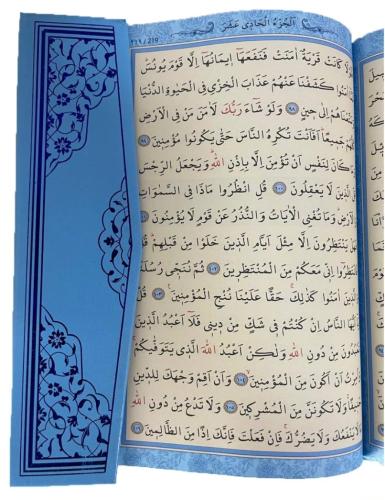 اَلْجُزْءُ الْحَادِى عَشَرَ
٢١٩ / 219
كَانَتْ قَرْيَةٌ اٰمَنَتْ فَنَفَعَهَٓا اِيمَانُهَٓا اِلَّا قَوْمَ يُونُسَ
اٰمَنُوا كَشَفْنَا عَنْهُمْ عَذَابَ الْخِزْىِ فِى الْحَيٰوةِ الدُّنْيَا
اِلٰى حِينٍ ٩٨ وَلَوْ شَٓاءَ رَبُّكَ لَاٰمَنَ مَنْ فِى الْاَرْضِ
جَمِيعًا اَفَاَنْتَ تُكْرِهُ النَّاسَ حَتّٰى يَكُونُوا مُؤْمِنِينَ ٩٩
كَانَ لِنَفْسٍ اَنْ تُؤْمِنَ اِلَّا بِاِذْنِ اللّٰهِ وَيَجْعَلُ الرِّجْسَ
الَّذِينَ لَا يَعْقِلُونَ ١٠٠ قُلِ انْظُرُوا مَاذَا فِى السَّمٰوَاتِ
وَمَا تُغْنِى الْاٰيَاتُ وَالنُّذُرُ عَنْ قَوْمٍ لَا يُؤْمِنُونَ ١٠١
يَنْتَظِرُونَ اِلَّا مِثْلَ اَيَّامِ الَّذِينَ خَلَوْا مِنْ قَبْلِهِمْ قُلْ
اِنِّى مَعَكُمْ مِنَ الْمُنْتَظِرِينَ ١٠٢ ثُمَّ نُنَجِّى رُسُلَنَا
اٰمَنُوا كَذٰلِكَ حَقًّا عَلَيْنَا نُنْجِ الْمُؤْمِنِينَ ١٠٣ قُلْ
النَّاسُ اِنْ كُنْتُمْ فِى شَكٍّ مِنْ دِينِى فَلَٓا اَعْبُدُ الَّذِينَ
مِنْ دُونِ اللّٰهِ وَلٰكِنْ اَعْبُدُ اللّٰهَ الَّذِى يَتَوَفّٰيكُمْ
اَنْ اَكُونَ مِنَ الْمُؤْمِنِينَ ١٠٤ وَاَنْ اَقِمْ وَجْهَكَ لِلدِّينِ
وَلَا تَكُونَنَّ مِنَ الْمُشْرِكِينَ ١٠٥ وَلَا تَدْعُ مِنْ دُونِ اللّٰهِ
لَا يَنْفَعُكَ وَلَا يَضُرُّكَ فَاِنْ فَعَلْتَ فَاِنَّكَ اِذًا مِنَ الظَّالِمِينَ ١٠٦